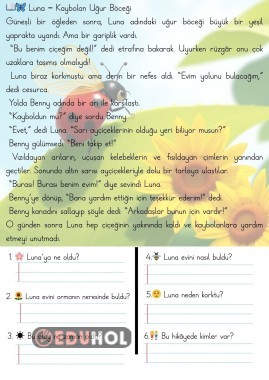 Luna – Kaybolan Uğur Böceği
Güneşli bir öğleden sonra, Luna adındaki uğur böceği büyük bir yeşil
yaprakta uyandı. Ama bir gariplik vardı.
"Bu benim çiçeğim değil!" dedi etrafına bakarak. Uyurken rüzgâr onu çok
uzaklara taşımış olmalıydı!
Luna biraz korkmuştu ama derin bir nefes aldı. "Evim yolunu bulacağım,"
dedi cesurca.
Yolda Benny adında bir arı ile karşılaştı.
"Kayboldun mu?" diye sordu Benny.
"Evet," dedi Luna. "Sarı ayçiçeklerinin olduğu yeri biliyor musun?"
Benny gülümsedi. "Beni takip et!"
Vızıldayan arıların, uçuşan kelebeklerin ve fısıldayan çimlerin yanından
geçtiler. Sonunda altın sarısı ayçiçekleriyle dolu bir tarlaya ulaştılar.
"Burası! Burası benim evim!" diye sevindi Luna.
Benny'ye dönüp, "Bana yardım ettiğin için teşekkür ederim!" dedi.
Benny kanadını sallayıp şöyle dedi: "Arkadaşlar bunun için vardır!"
O günden sonra Luna hep çiçeğinin yakınında kaldı ve kaybolanlara yardım
etmeyi unutmadı.
1. Luna'ya ne oldu?
2. Luna evini ormanın neresinde buldu?
3. Bu olay ne zaman oldu?
EDUHOL
4. Luna evini nasıl buldu?
5. Luna neden korktu?
6. Bu hikâyede kimler var?